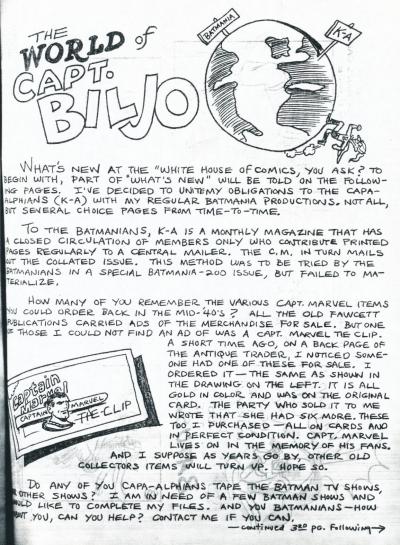 THE
WORLD of
CAPT.
BILJO
BATMANIA
K-A
WHAT'S NEW AT THE "WHITE HOUSE OF COMICS, YOU ASK? TO
BEGIN WITH, PART OF "WHAT'S NEW" WILL BE TOLD ON THE FOLLOW-
NG PAGES. I'VE DECIDED TO UNITE MY OBLIGATIONS TO THE CAPA-
ALPHIANS (K-A) WITH MY REGULAR BATMANIA PRODUCTIONS. NOT ALL,
BUT SEVERAL CHOICE PAGES FROM TIME-TO-TIME.
TO THE BATMANIANS, K-A IS A MONTHLY MAGAZINE THAT HAS
A CLOSED CIRCULATION OF MEMBERS ONLY WHO CONTRIBUTE PRINTED
PAGES REGULARLY TO A CENTRAL MAILER. THE C.M. IN TURN MAILS
OUT THE COLLATED ISSUE. THIS METHOD WAS TO BE TRIED BY THE
BATMANIANS IN A SPECIAL BATMANIA-200 ISSUE, BUT FAILED TO MA-
TERIALIZE.
HOW MANY OF YOU REMEMBER THE VARIOUS CAPT. MARVEL ITEMS
YOU COULD ORDER BACK IN THE MID-'40'S? ALL THE OLD FAWCETT
PUBLICATIONS CARRIED ADS OF THE MERCHANDISE FOR SALE. BUT ONE
OF THOSE I COULD NOT FIND AN AD OF WAS A CAPT. MARVEL TIE CLIP.
A SHORT TIME AGO, ON A BACK PAGE OF
THE ANTIQUE TRADER, I NOTICED SOME-
ONE HAD ONE OF THESE FOR SALE. I
ORDERED IT — THE SAME AS SHOWN IN
THE DRAWING ON THE LEFT. IT IS ALL
GOLD IN COLOR AND WAS ON THE ORIGINAL
CARD. THE PARTY WHO SOLD IT TO ME
WROTE THAT SHE HAD SIX MORE. THESE
TOO I PURCHASED — ALL ON CARDS AND
IN PERFECT CONDITION. CAPT. MARVEL
LIVES ON IN THE MEMORY OF HIS FANS.
AND I SUPPOSE AS YEARS GO BY, OTHER OLD
COLLECTORS ITEMS WILL TURN UP. I HOPE SO.
Captain
Marvel
CAPTAIN MARVEL
TIE-CLIP
DO ANY OF YOU CAPA-ALPHIANS TAPE THE BATMAN TV SHOWS,
OR OTHER SHOWS? I AM IN NEED OF A FEW BATMAN SHOWS AND
WOULD LIKE TO COMPLETE MY FILES. AND YOU BATMANIANS — HOW
ABOUT YOU, CAN YOU HELP? CONTACT ME IF YOU CAN.
— continued 3RD PG. Following →